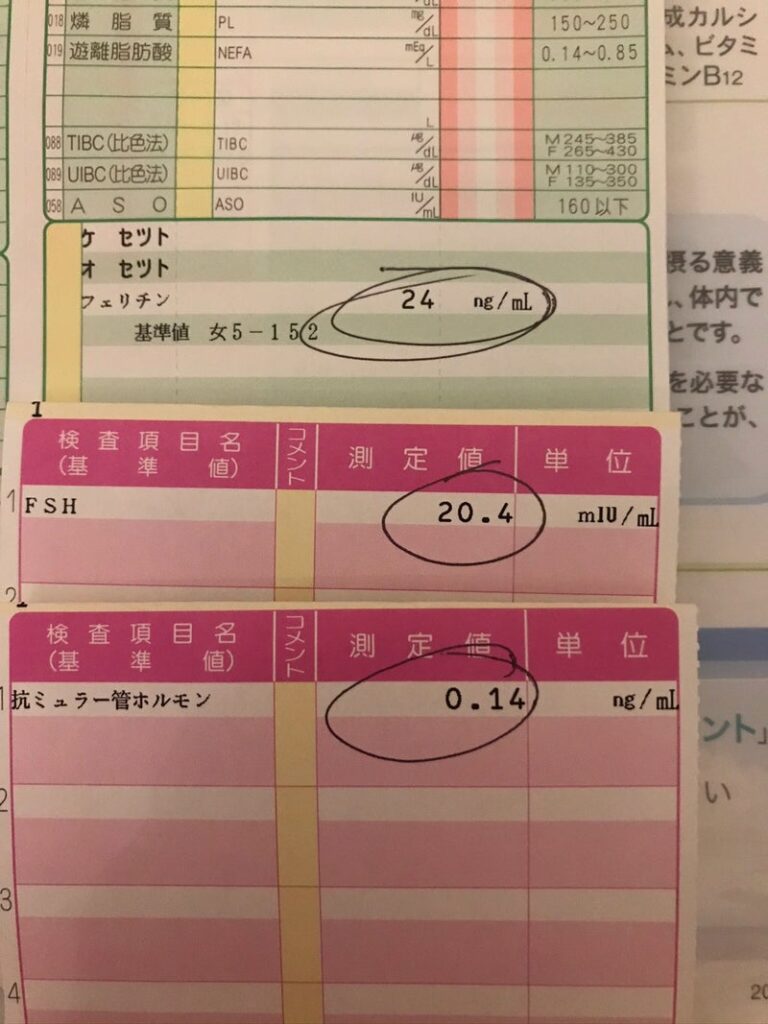 018 燐脂質 PL mg/dL 150~250
019 遊離脂肪酸 NEFA mEq/L 0.14~0.85
L
088 TIBC(比色法) TIBC μg/dL M 245~385
F 265~430
089 UIBC(比色法) UIBC μg/dL M 110~300
F 135~350
058 ASO ASO IU/mL 160以下
ケ セツト
オ セツト
フェリチン 24 ng/mL
基準値 女5-152
1
検査項目名 コメント 測定値 単位
(基準値)
1 FSH 20.4 mIU/mL
2
1
検査項目名 コメント 測定値 単位
(基準値)
1 抗ミュラー管ホルモン 0.14 ng/mL
2
3
4
成カルシ
ム、ビタミ
ミンB12
摂る意義
、体内で
とです。
を必要な
ことが、
ント」
い
20